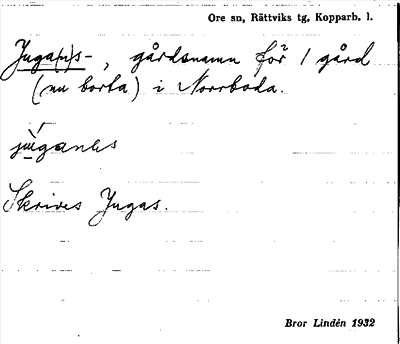 Ore sn, Rättviks tg, Kopparb. l.
Juga(n)s-, gårdsnamn för 1 gård
(nu borta) i Norrboda.
Skrives Jugas.
Bror Lindén 1932